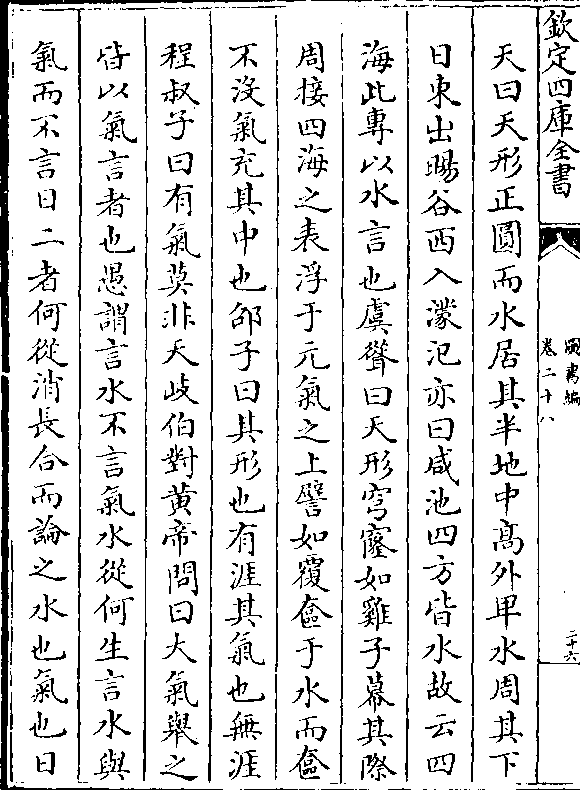 欽定四庫全書
圖書編
卷二十八
二十六
天曰天形正圓而水居其半地中高外卑水周其下
日東出暘谷西入濛汜亦曰咸池四方皆水故云四
海此專以水言也虞聳曰天形穹窿如雞子幕其際
周接四海之表浮于元氣之上譬如覆奩于水而奩
不没氣充其中也邵子曰其形也有涯其氣也無涯
程叔子曰有氣莫非天歧伯對黄帝問曰大氣舉之
皆以氣言者也愚謂言水不言氣水從何生言水與
氣而不言日二者何從消長合而論之水也氣也日